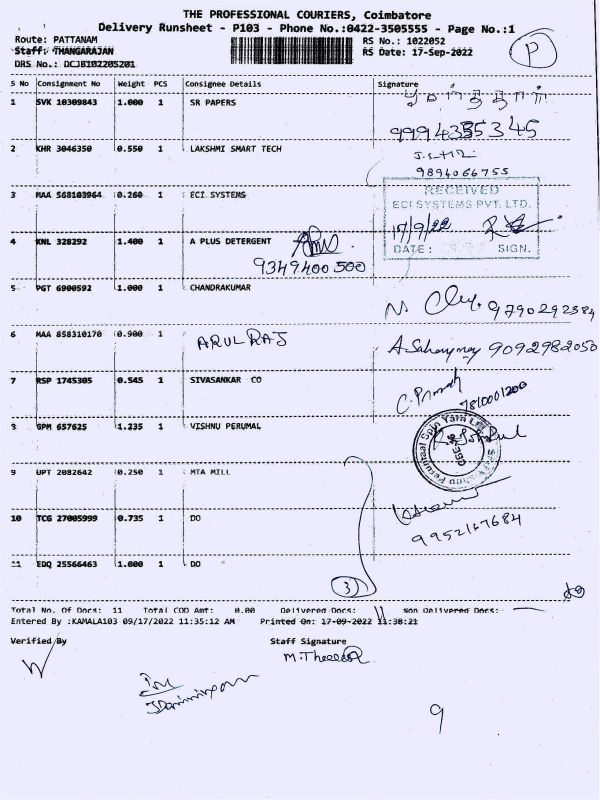 THE PROFESSIONAL COURIERS, Coimbatore
Delivery Runsheet - P103 - Phone No.:0422-3505555 - Page No.:1
Route: PATTANAM RS No.: 1022052
Staff: THANGARAJAN RS Date: 17-Sep-2022
DRS No.: DCJB102205201
P
S No Consignment No Weight PCS Consignee Details Signature
1 SVK 10309843 1.000 1 SR PAPERS
9994355345
2 KHR 3046350 0.550 1 LAKSHMI SMART TECH
9894066755
3 MAA 568103964 0.260 1 ECI SYSTEMS
RECEIVED
ECI SYSTEMS PVT. LTD.
17/9/22
DATE: SIGN.
4 KNL 328292 1.400 1 A PLUS DETERGENT
9349400500
5 PGT 6900592 1.000 1 CHANDRAKUMAR
9790292384
6 MAA 858310170 0.900 1 ARUL RAJ
9092982050
7 RSP 1745305 0.545 1 SIVASANKAR CO
7810001200
8 GPM 657625 1.235 1 VISHNU PERUMAL
9 UPT 2082642 0.250 1 MTA MILL
10 TCG 27005999 0.735 1 DO
9952167684
11 EDQ 25566463 1.000 1 DO
3
Total No. Of Docs: 11 Total COD Amt: 0.00 Delivered Docs: 11 Non Delivered Docs:
Entered By :KAMALA103 09/17/2022 11:35:12 AM Printed On: 17-09-2022 11:38:21
Verified By Staff Signature
9